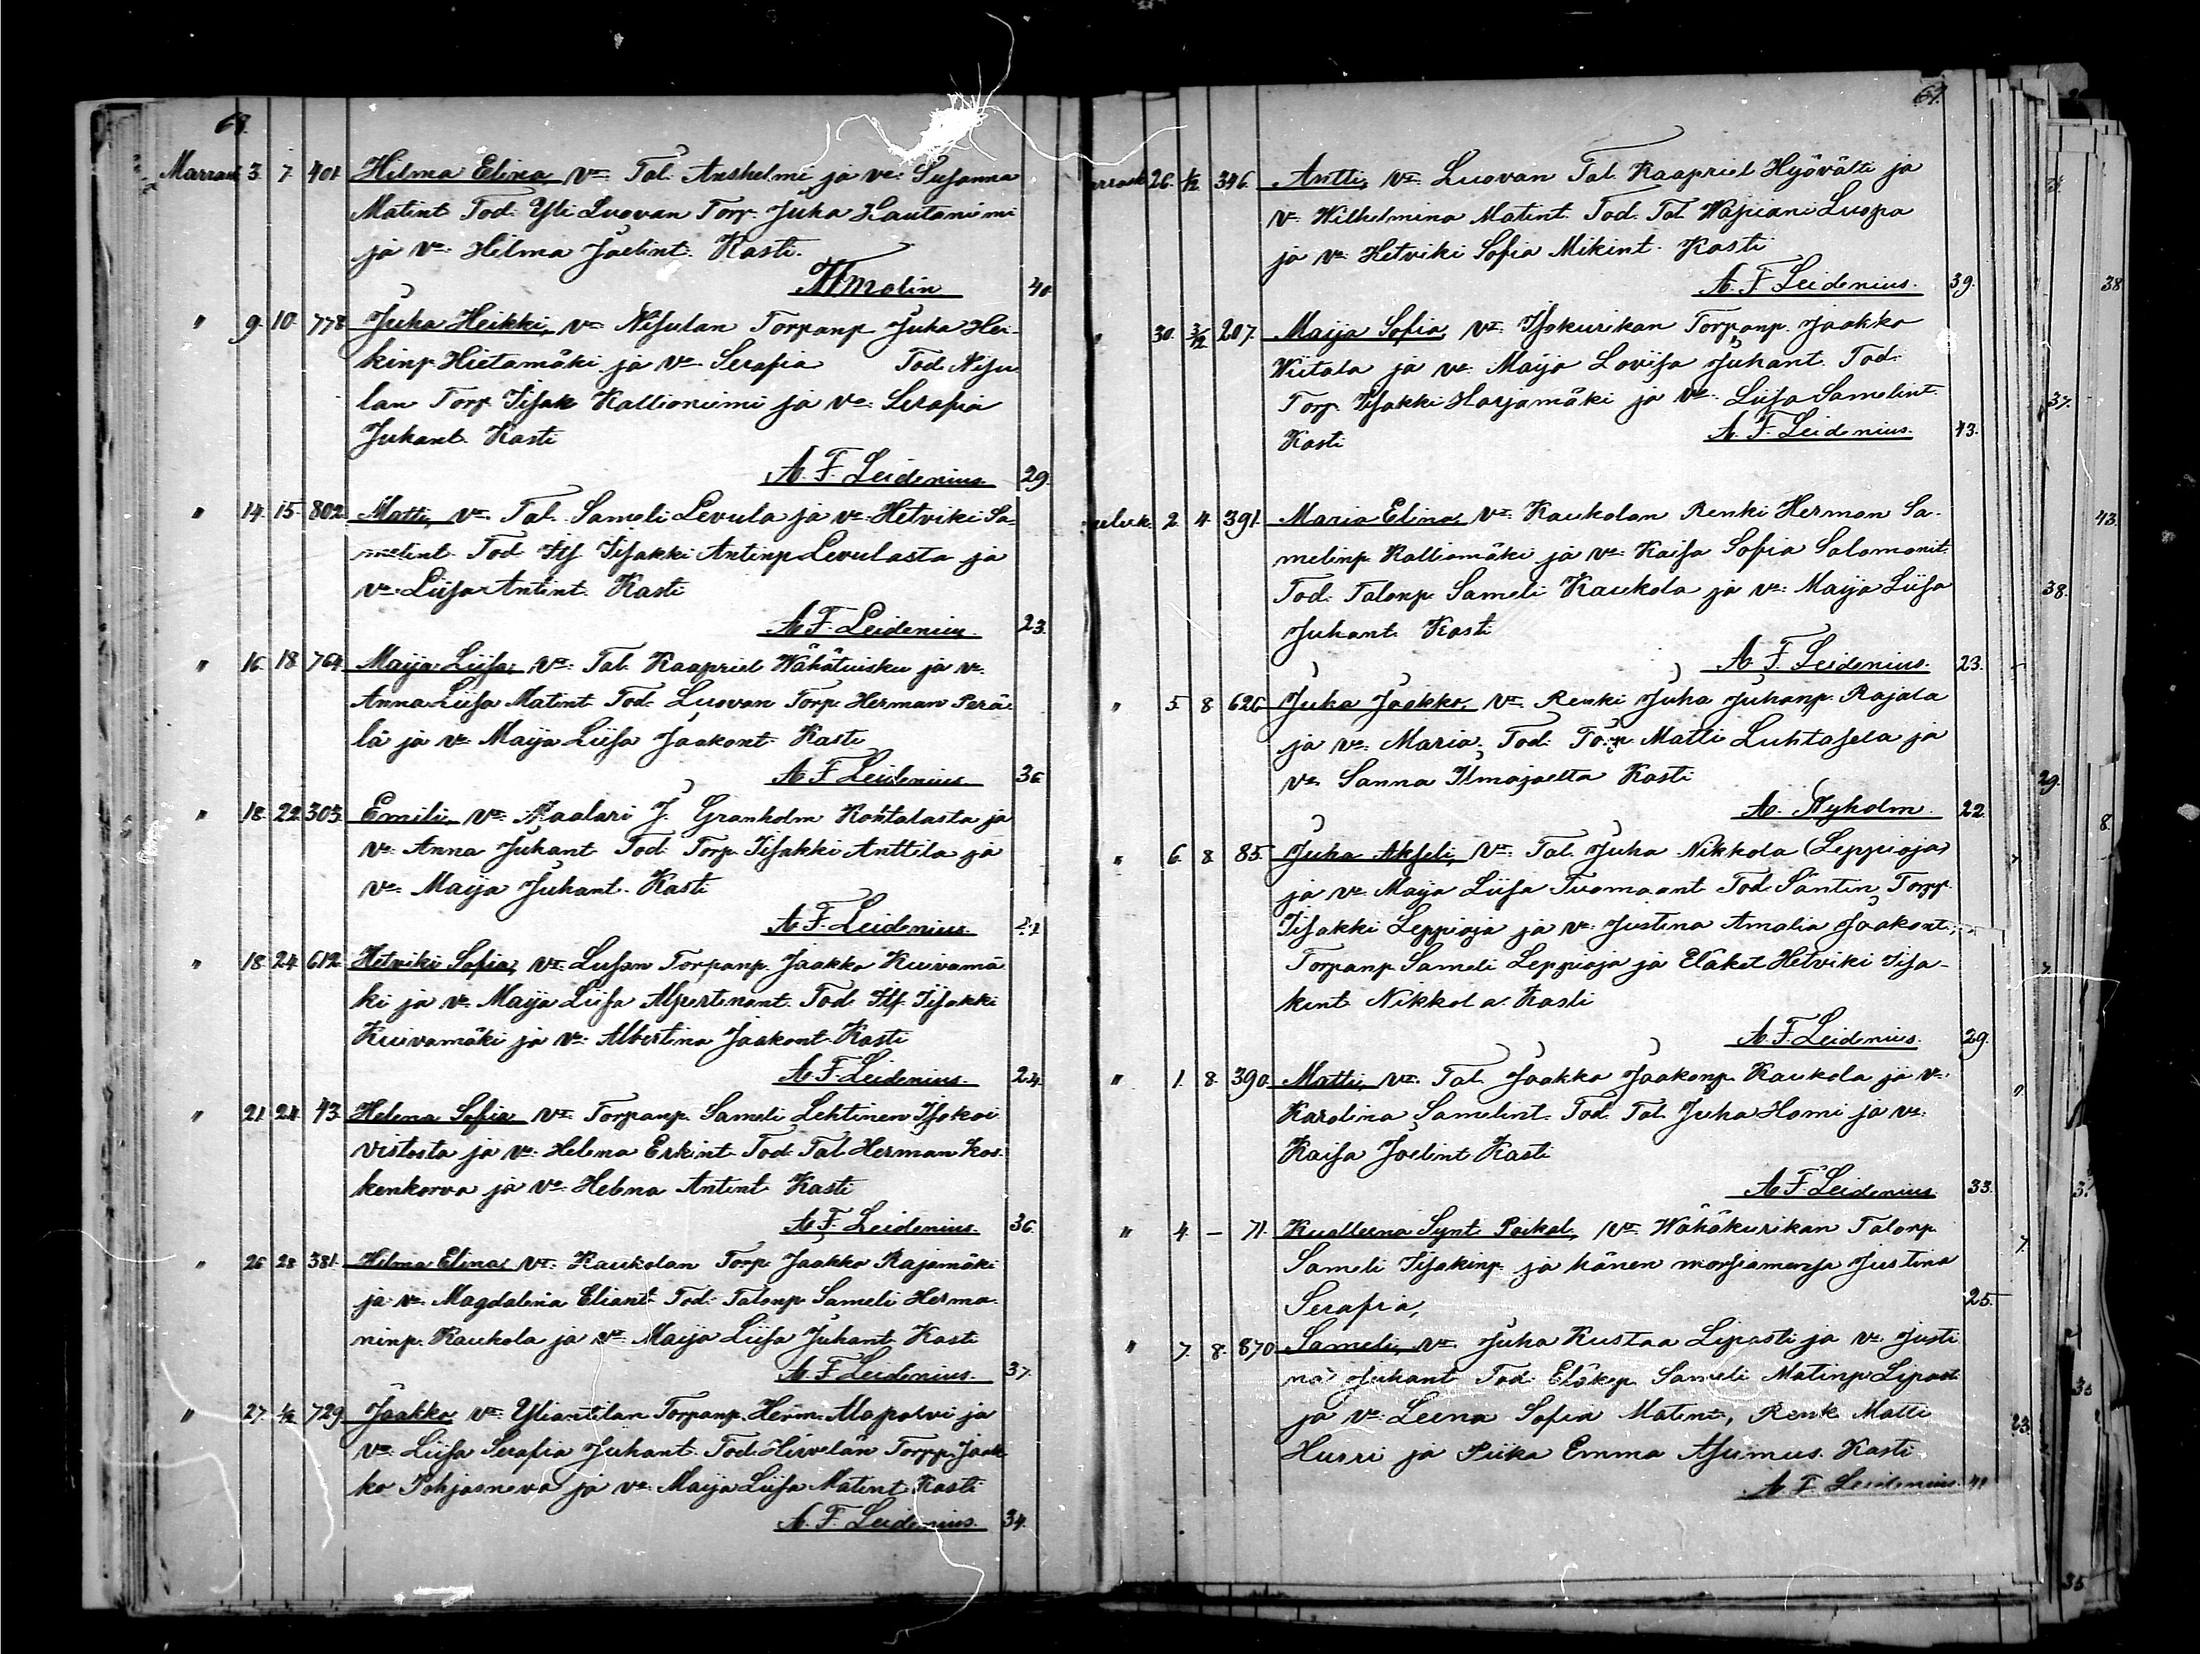 68.
Marrask. 3. 7. 401. Hilma Elina, v:m Tal. Anshelmi ja v:o Susanna
Matint. Tod. Yli Luovan Torp. Juha Hautaniemi
ja v:o Hilma Joelint. Kasti.
Malin 40.
" 9. 10. 778 Juha Heikki, v:m Nisulan Torpanp. Juha Hei-
kinp. Hietamäki ja v:o Serafia Tod. Nisu
lan Torp. Iisak Kallioniemi ja v:o Serafia
Juhant. Kasti
A. F. Leidenius. 29.
" 14. 15. 802. Matti, v:m Tal. Sameli Levula ja v:o Hetviki Sa-
melint. Tod. Its. Iisakki Antinp. Levulasta ja
v:o Liisa Antint. Kasti
A. F. Leidenius. 23.
" 16. 18. 764. Maija Liisa, v:m Tal. Kaapriel Wähätuisku ja v:o
Anna Liisa Matint. Tod. Luovan Torp. Herman Perä-
lä ja v:o Maija Liisa Jaakont. Kasti
A. F. Leidenius. 36.
" 18. 22. 303. Emili, v:m Maalari J. Granholm Kohtalasta ja
v:o Anna Juhant. Tod. Torp. Iisakki Anttila ja
v:o Maija Juhant. Kasti
A. F. Leidenius.
" 18. 24. 612. Hetviki Sofia, v:m Lusan Torpanp. Jaakko Kuivamä
ki ja v:o Maija Liisa Alpertinant. Tod. Its. Iisakki
Kuivamäki ja v:o Albertina Jaakont. Kasti
A. F. Leidenius. 24.
" 21. 24. 43. Helena Sofia, v:m Torpanp. Sameli Lehtinen Isokoi
vistosta ja v:o Helena Erkint. Tod. Tal. Herman Kos-
kenkorva ja v:o Helena Antint. Kasti
A. F. Leidenius. 36.
" 26. 28. 381. Hilma Elina, v:m Kaukolan Torp. Jaakko Rajamäki
ja v:o Magdalena Eliant. Tod. Talonp. Sameli Herma-
ninp. Kaukola ja v:o Maija Liisa Juhant. Kasti
A. F. Leidenius. 37.
" 27. 1/12 729. Jaakko, v:m Yliantilan Torpanp. Herm. Alapolvi ja
v:o Liisa Serafia Juhant. Tod. Hirvelän Torpp. Jaak
ko Pohjasneva ja v:o Maija Liisa Matint. Kasti
A. F. Leidenius. 34.
69.
26. 1/12. 346. Antti, v:m Luovan Tal. Kaapriel Hyövälti ja
v:o Wilhelmina Matint. Tod. Tal. Wapiani Luopa
ja v:o Hetviki Sofia Mikint. Kasti
A. F. Leidenius. 39.
" 30. 3/12. 207. Maija Sofia, v:m Isokurikan Torpanp. Jaakko
Wiitala ja v:o Maija Lovisa Juhant. Tod.
Torp. Iisakki Harjamäki ja v:o Liisa Samelint.
Kasti A. F. Leidenius. 43.
2. 4. 391. Maria Elina, v:m Kaukolan Renki Herman Sa-
melinp. Kalliomäki ja v:o Kaisa Sofia Salomonit.
Tod. Talonp. Sameli Kaukola ja v:o Maija Liisa
Juhant. Kasti
A. F. Leidenius. 23.
" 5. 8. 626. Juha Jaakko, v:m Renki Juha Juhanp. Rajala
ja v:o Maria. Tod. Torp. Matti Luhtasela ja
v:o Sanna Ilmajoelta Kasti
A. Nyholm. 22.
" 6. 8. 85. Juha Akseli, v:m Tal. Juha Nikkola (Leppioja)
ja v:o Maija Liisa Tuomaant. Tod. Säntin Torpp.
Iisakki Leppioja ja v:o Justina Amalia Jaakont.,
Torpanp. Sameli Leppioja ja Eläket Hetviki Iisa-
kint. Nikkola. Kasti
A. F. Leidenius. 29.
" 1. 8. 390. Matti, v:m Tal. Jaakko Jaakonp. Kaukola ja v:o
Karolina Samelint. Tod. Tal. Juha Homi ja v:o
Kaisa Joelint. Kasti
A. F. Leidenius. 33.
" 4. - 71. Kuolleena Synt. Poikal., v:m Wähäkurikan Talonp.
Sameli Iisakinp. ja hänen morsiamensa Justina
Serafia, 25.
" 7. 8. 870. Sameli, v:m Juha Kustaa Lipasti ja v:o Justi
na Juhant. Tod. Eläkep. Sameli Matinp. Lipast
ja v:o Leena Sofia Matint., Renk. Matti
Hurri ja Piika Emma Asumus. Kasti
A. F. Leidenius. 41